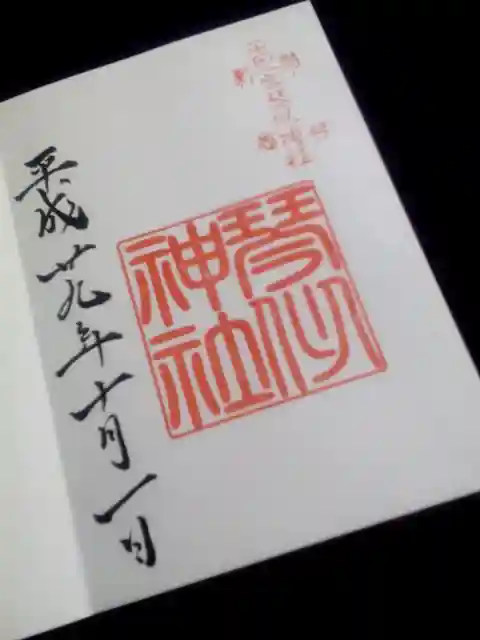 琴似
神社
平成廿九年十月一日